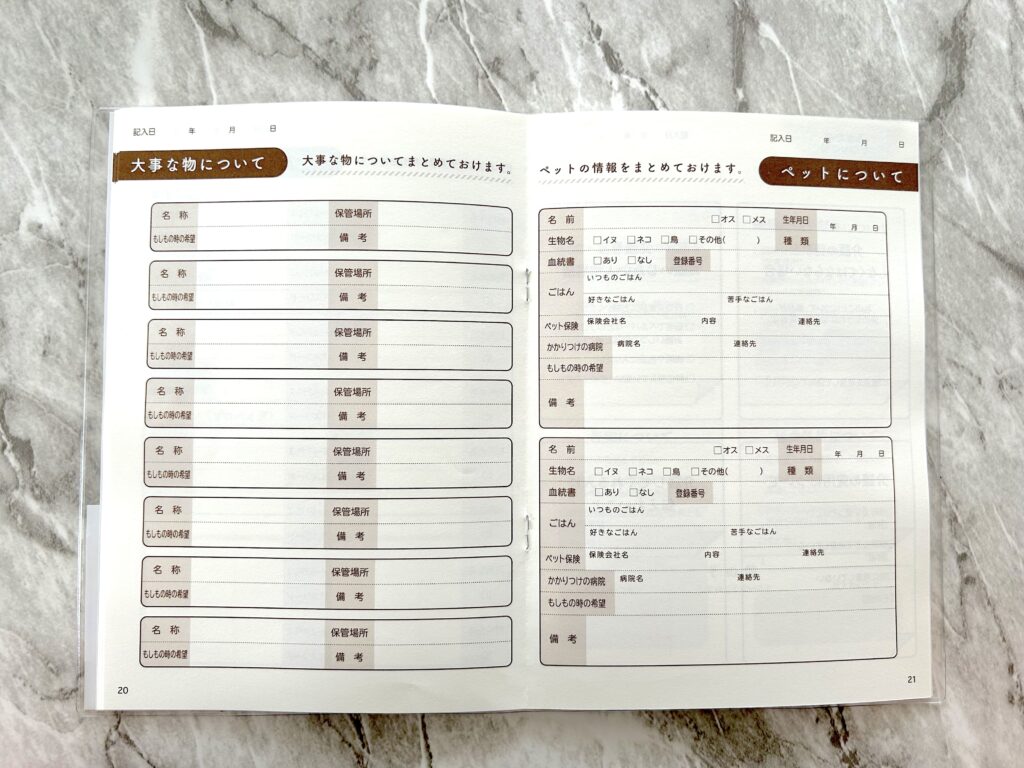 記入日 年 月 日
大事な物について
大事な物についてまとめておけます。
名 称 保管場所
もしもの時の希望 備 考
名 称 保管場所
もしもの時の希望 備 考
名 称 保管場所
もしもの時の希望 備 考
名 称 保管場所
もしもの時の希望 備 考
名 称 保管場所
もしもの時の希望 備 考
名 称 保管場所
もしもの時の希望 備 考
名 称 保管場所
もしもの時の希望 備 考
名 称 保管場所
もしもの時の希望 備 考
20
記入日 年 月 日
ペットの情報をまとめておけます。
ペットについて
名 前 □オス □メス 生年月日 年 月 日
生物名 □イヌ □ネコ □鳥 □その他( ) 種 類
血統書 □あり □なし 登録番号
ごはん いつものごはん
好きなごはん 苦手なごはん
ペット保険 保険会社名 内容 連絡先
かかりつけの病院 病院名 連絡先
もしもの時の希望
備 考
名 前 □オス □メス 生年月日 年 月 日
生物名 □イヌ □ネコ □鳥 □その他( ) 種 類
血統書 □あり □なし 登録番号
ごはん いつものごはん
好きなごはん 苦手なごはん
ペット保険 保険会社名 内容 連絡先
かかりつけの病院 病院名 連絡先
もしもの時の希望
備 考
21